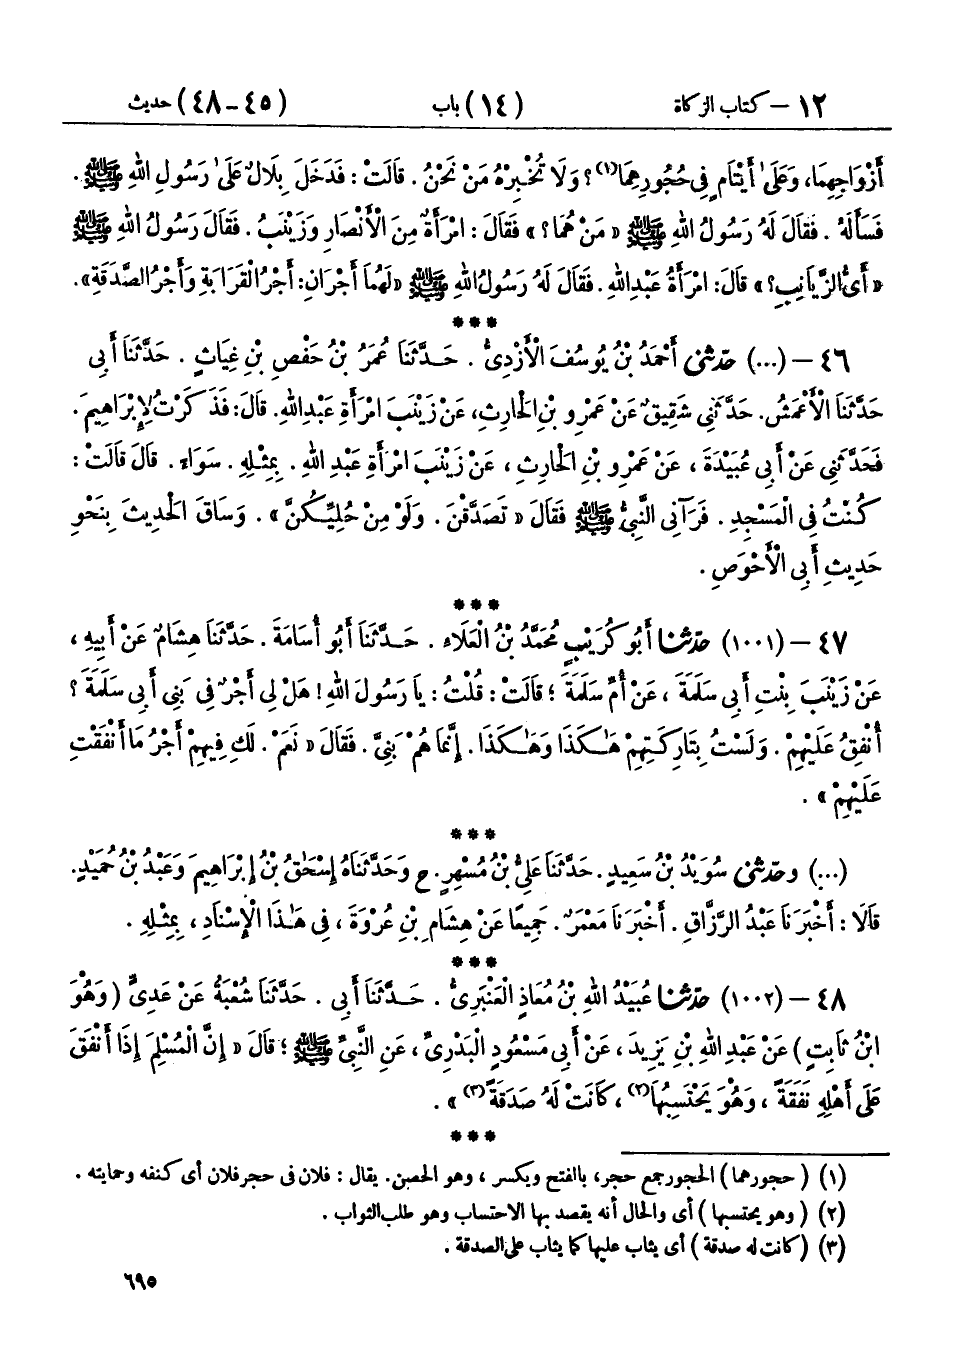 ١٢ – كتاب الزكاة (١٤) باب (٤٥–٤٨) حديث
أَزْوَاجِهِمَا، وَعَلَىٰ أَيْتَامٍ فِي حُجُورِهِمَا(١)؟ وَلَا تُخْبِرْهُ مَنْ نَحْنُ. قَالَتْ: فَدَخَلَ بِلَالٌ عَلَىٰ رَسُولِ اللهِ ﷺ.
فَسَأَلَهُ. فَقَالَ لَهُ رَسُولُ اللهِ ﷺ « مَنْ هُمَا؟ » فَقَالَ: امْرَأَةٌ مِنَ الْأَنْصَارِ وَزَيْنَبُ. فَقَالَ رَسُولُ اللهِ ﷺ
« أَيُّ الزَّيَانِبِ؟ » قَالَ: امْرَأَةُ عَبْدِ اللهِ. فَقَالَ لَهُ رَسُولُ اللهِ ﷺ « لَهُمَا أَجْرَانِ: أَجْرُ الْقَرَابَةِ وَأَجْرُ الصَّدَقَةِ».
***
٤٦ – (...) حدّثني أَحْمَدُ بْنُ يُوسُفَ الْأَزْدِيُّ. حَدَّثَنَا عُمَرُ بْنُ حَفْصِ بْنِ غِيَاثٍ. حَدَّثَنَا أَبِي
حَدَّثَنَا الْأَعْمَشُ. حَدَّثَنِي شَقِيقٌ عَنْ عَمْرِو بْنِ الْحَارِثِ، عَنْ زَيْنَبَ امْرَأَةِ عَبْدِ اللهِ. قَالَ: فَذَكَرْتُ لِإِبْرَاهِيمَ.
فَحَدَّثَنِي عَنْ أَبِي عُبَيْدَةَ، عَنْ عَمْرِو بْنِ الْحَارِثِ، عَنْ زَيْنَبَ امْرَأَةِ عَبْدِ اللهِ. بِمِثْلِهِ. سَوَاءً. قَالَ قَالَتْ:
كُنْتُ فِي الْمَسْجِدِ. فَرَآنِي النَّبِيُّ ﷺ فَقَالَ « تَصَدَّقْنَ. وَلَوْ مِنْ حُلِيِّكُنَّ ». وَسَاقَ الْحَدِيثَ بِنَحْوِ
حَدِيثِ أَبِي الْأَحْوَصِ.
***
٤٧ – (١٠٠١) حدّثنا أَبُو كُرَيْبٍ مُحَمَّدُ بْنُ الْعَلَاءِ. حَدَّثَنَا أَبُو أُسَامَةَ. حَدَّثَنَا هِشَامٌ عَنْ أَبِيهِ،
عَنْ زَيْنَبَ بِنْتِ أَبِي سَلَمَةَ، عَنْ أُمِّ سَلَمَةَ؛ قَالَتْ: قُلْتُ: يَا رَسُولَ اللهِ! هَلْ لِي أَجْرٌ فِي بَنِي أَبِي سَلَمَةَ؟
أُنْفِقُ عَلَيْهِمْ. وَلَسْتُ بِتَارِكَتِهِمْ هَـٰكَذَا وَهَـٰكَذَا. إِنَّمَا هُمْ بَنِيَّ. فَقَالَ « نَعَمْ. لَكِ فِيهِمْ أَجْرُ مَا أَنْفَقْتِ
عَلَيْهِمْ ».
***
(...) وحدّثني سُوَيْدُ بْنُ سَعِيدٍ. حَدَّثَنَا عَلِيُّ بْنُ مُسْهِرٍ. ح وَحَدَّثَنَاهُ إِسْحَٰقُ بْنُ إِبْرَاهِيمَ وَعَبْدُ بْنُ حُمَيْدٍ.
قَالَا: أَخْبَرَنَا عَبْدُ الرَّزَّاقِ. أَخْبَرَنَا مَعْمَرٌ. جَمِيعًا عَنْ هِشَامِ بْنِ عُرْوَةَ، فِي هَـٰذَا الْإِسْنَادِ، بِمِثْلِهِ.
***
٤٨ – (١٠٠٢) حدّثنا عُبَيْدُ اللهِ بْنُ مُعَاذٍ الْعَنْبَرِيُّ. حَدَّثَنَا أَبِي. حَدَّثَنَا شُعْبَةُ عَنْ عَدِيٍّ (وَهُوَ
ابْنُ ثَابِتٍ) عَنْ عَبْدِ اللهِ بْنِ يَزِيدَ، عَنْ أَبِي مَسْعُودٍ الْبَدْرِيِّ، عَنِ النَّبِيِّ ﷺ؛ قَالَ « إِنَّ الْمُسْلِمَ إِذَا أَنْفَقَ
عَلَى أَهْلِهِ نَفَقَةً، وَهُوَ يَحْتَسِبُهَا(٢)، كَانَتْ لَهُ صَدَقَةً(٣) ».
***
(١) (حجورهما) الحجور جمع حجر، بالفتح ويكسر، وهو الحصن. يقال: فلان فى حجر فلان أى كنفه وحمايته.
(٢) (وهو يحتسبها) أى والحال أنه يقصد بها الاحتساب وهو طلب الثواب.
(٣) (كانت له صدقة) أى يثاب عليها كما يثاب على الصدقة.
٦٩٥